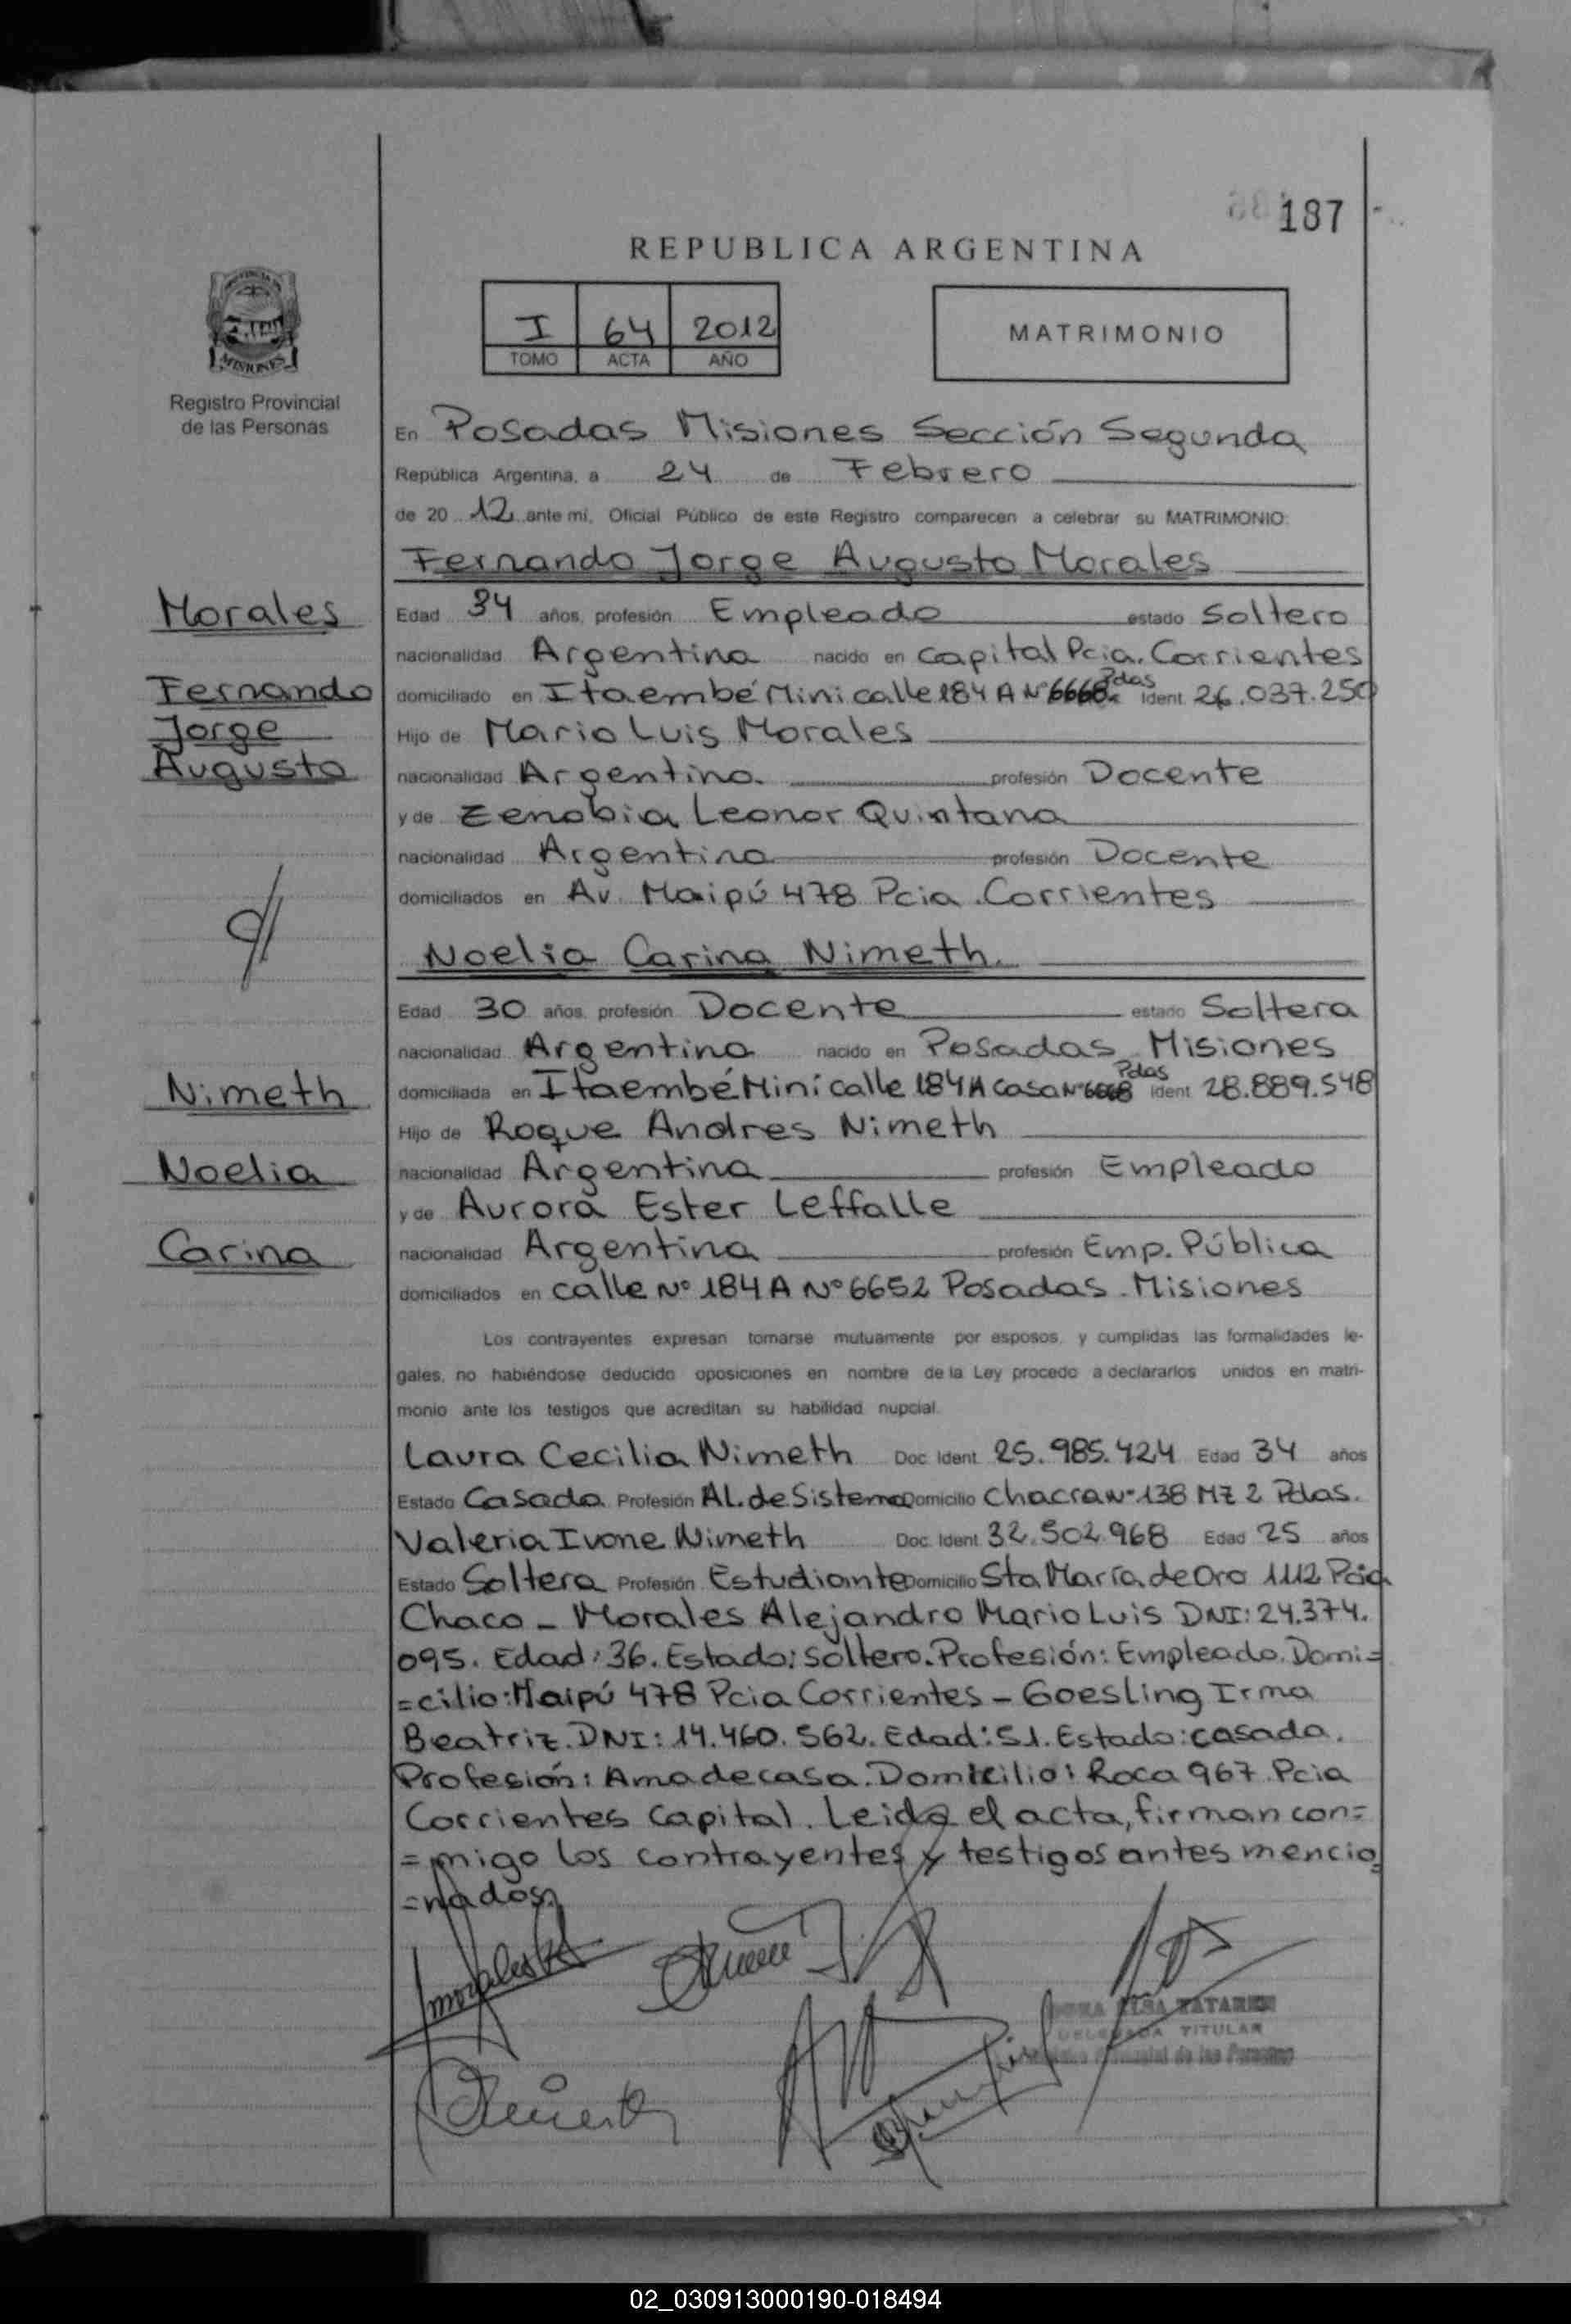 187
REPUBLICA ARGENTINA
I 64 2012
TOMO ACTA AÑO
MATRIMONIO
MISIONES
Registro Provincial
de las Personas
En Posadas Misiones Sección Segunda
República Argentina, a 24 de Febrero
de 20 12 ante mi, Oficial Público de este Registro comparecen a celebrar su MATRIMONIO:
Fernando Jorge Augusto Morales
Morales
Edad 34 años, profesión Empleado estado Soltero
nacionalidad Argentina nacido en Capital Pcia. Corrientes
Fernando
domiciliado en Itaembé Mini calle 184 A Nº 6668 Pdas Ident 26.037.250
Jorge
Hijo de Mario Luis Morales
Augusto
nacionalidad Argentina profesión Docente
y de Zenobia Leonor Quintana
nacionalidad Argentina profesión Docente
domiciliados en Av. Maipú 478 Pcia. Corrientes
Noelia Carina Nimeth.
Edad 30 años, profesión Docente estado Soltera
nacionalidad Argentina nacido en Posadas Misiones
Nimeth
domiciliada en Itaembé Miní calle 184 A casa Nº 6668 Pdas Ident 28.889.548
Hijo de Roque Andres Nimeth
Noelia
nacionalidad Argentina profesión Empleado
y de Aurora Ester Leffalle
Carina
nacionalidad Argentina profesión Emp. Pública
domiciliados en calle Nº 184 A Nº 6652 Posadas - Misiones
Los contrayentes expresan tomarse mutuamente por esposos, y cumplidas las formalidades le-
gales, no habiéndose deducido oposiciones en nombre de la Ley procedo a declararlos unidos en matri-
monio ante los testigos que acreditan su habilidad nupcial.
Laura Cecilia Nimeth Doc. Ident 25.985.424 Edad 34 años
Estado Casada Profesión AL. de Sistema Domicilio Chacra Nº 138 MZ 2 Pdas.
Valeria Ivone Nimeth Doc. Ident 32.502.968 Edad 25 años
Estado Soltera Profesión Estudiante Domicilio Sta María de Oro 1112 Pcia
Chaco - Morales Alejandro Mario Luis DNI: 24.374.
095. Edad: 36. Estado: Soltero. Profesión: Empleado. Domi=
=cilio: Maipú 478 Pcia Corrientes - Goesling Irma
Beatriz. DNI: 14.460.562. Edad: 51. Estado: casada.
Profesión: Ama de casa. Domicilio: Roca 967 Pcia
Corrientes Capital. Leida el acta, firman con=
=migo los contrayentes y testigos antes mencio=
=nados.
Morales
DELEGADA TITULAR
02_030913000190-018494